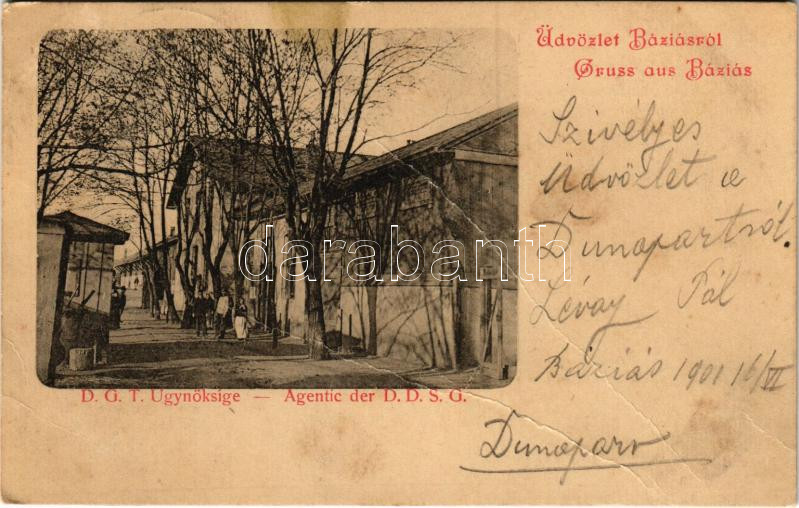 Üdvözlet Báziásról
Gruss aus Báziás
Szivélyes
Üdvözlet a
Dunapartról.
Lévay Pál
Báziás 1901 16/VI
Dunapart
D. G. T. Ugynöksige — Agentic der D. D. S. G.
darabanth.com